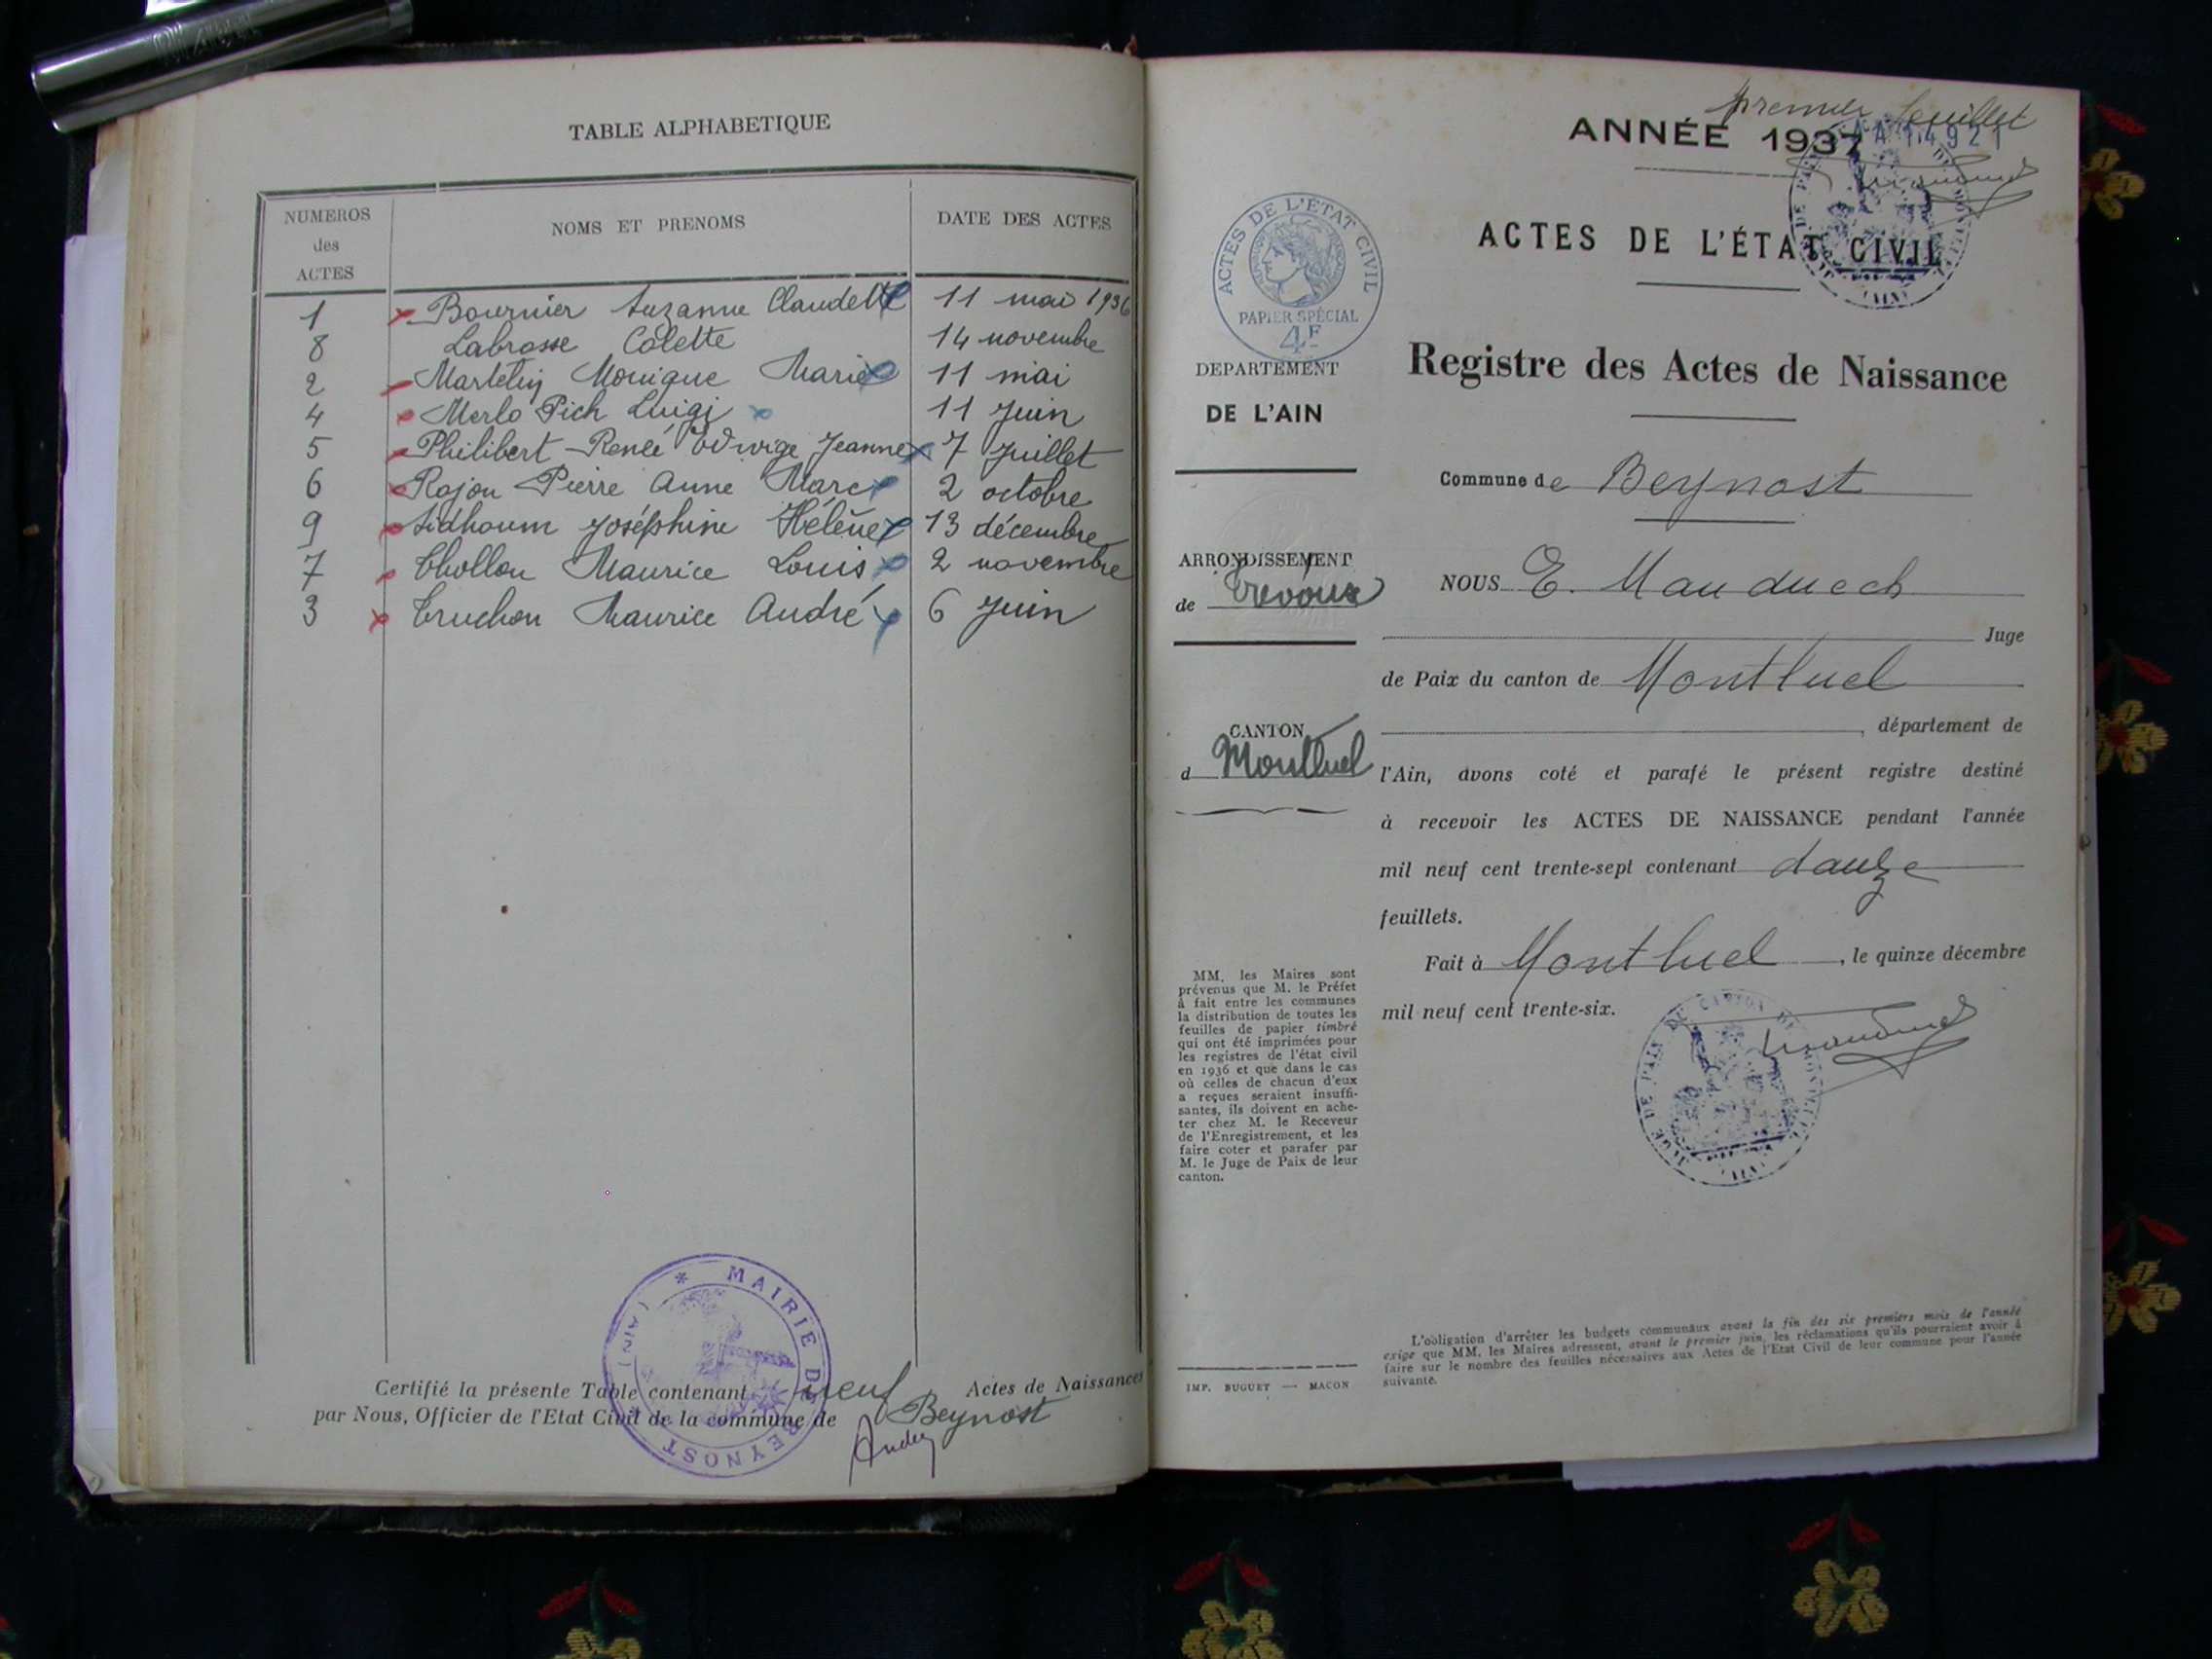 TABLE ALPHABETIQUE
NUMEROS des ACTES NOMS ET PRENOMS DATE DES ACTES
1 Bournier Suzanne Claudette 11 mai 1936
8 Labrosse Colette 14 novembre
2 Martelin Monique Marie 11 mai
4 Merlo Pich Luigi 11 Juin
5 Philibert Renée Edwige Jeanne 7 Juillet
6 Rojon Pierre Anne Marc 2 octobre
9 Sidhoum Joséphine Hélène 13 décembre
7 Thollon Maurice Louis 2 novembre
3 Truchon Maurice André 6 Juin
Certifié la présente Table contenant neuf Actes de Naissances
par Nous, Officier de l'Etat Civil de la commune de Beynost
* MAIRIE DE BEYNOST * (AIN)
premier feuillet
ANNÉE 1937
AA 14921
ACTES DE L'ÉTAT CIVIL
Registre des Actes de Naissance
ACTES DE L'ÉTAT CIVIL
PAPIER SPÉCIAL
4F
DEPARTEMENT
DE L'AIN
ARRONDISSEMENT
de Trévoux
CANTON
d Montluel
MM. les Maires sont
prévenus que M. le Préfet
à fait entre les communes
la distribution de toutes les
feuilles de papier timbré
qui ont été imprimées pour
les registres de l'état civil
en 1936 et que dans le cas
où celles de chacun d'eux
a reçues seraient insuffi-
santes, ils doivent en ache-
ter chez M. le Receveur
de l'Enregistrement, et les
faire coter et parafer par
M. le Juge de Paix de leur
canton.
IMP. BUGUET — MACON
Commune de Beynost
NOUS E. Mauduech
Juge
de Paix du canton de Montluel
, département de
l'Ain, avons coté et parafé le présent registre destiné
à recevoir les ACTES DE NAISSANCE pendant l'année
mil neuf cent trente-sept contenant douze
feuillets.
Fait à Montluel, le quinze décembre
mil neuf cent trente-six.
L'obligation d'arrêter les budgets communaux avant la fin des six premiers mois de l'année
exige que MM. les Maires adressent, avant le premier juin, les réclamations qu'ils pourraient avoir à
faire sur le nombre des feuilles nécessaires aux Actes de l'Etat Civil de leur commune pour l'année
suivante.